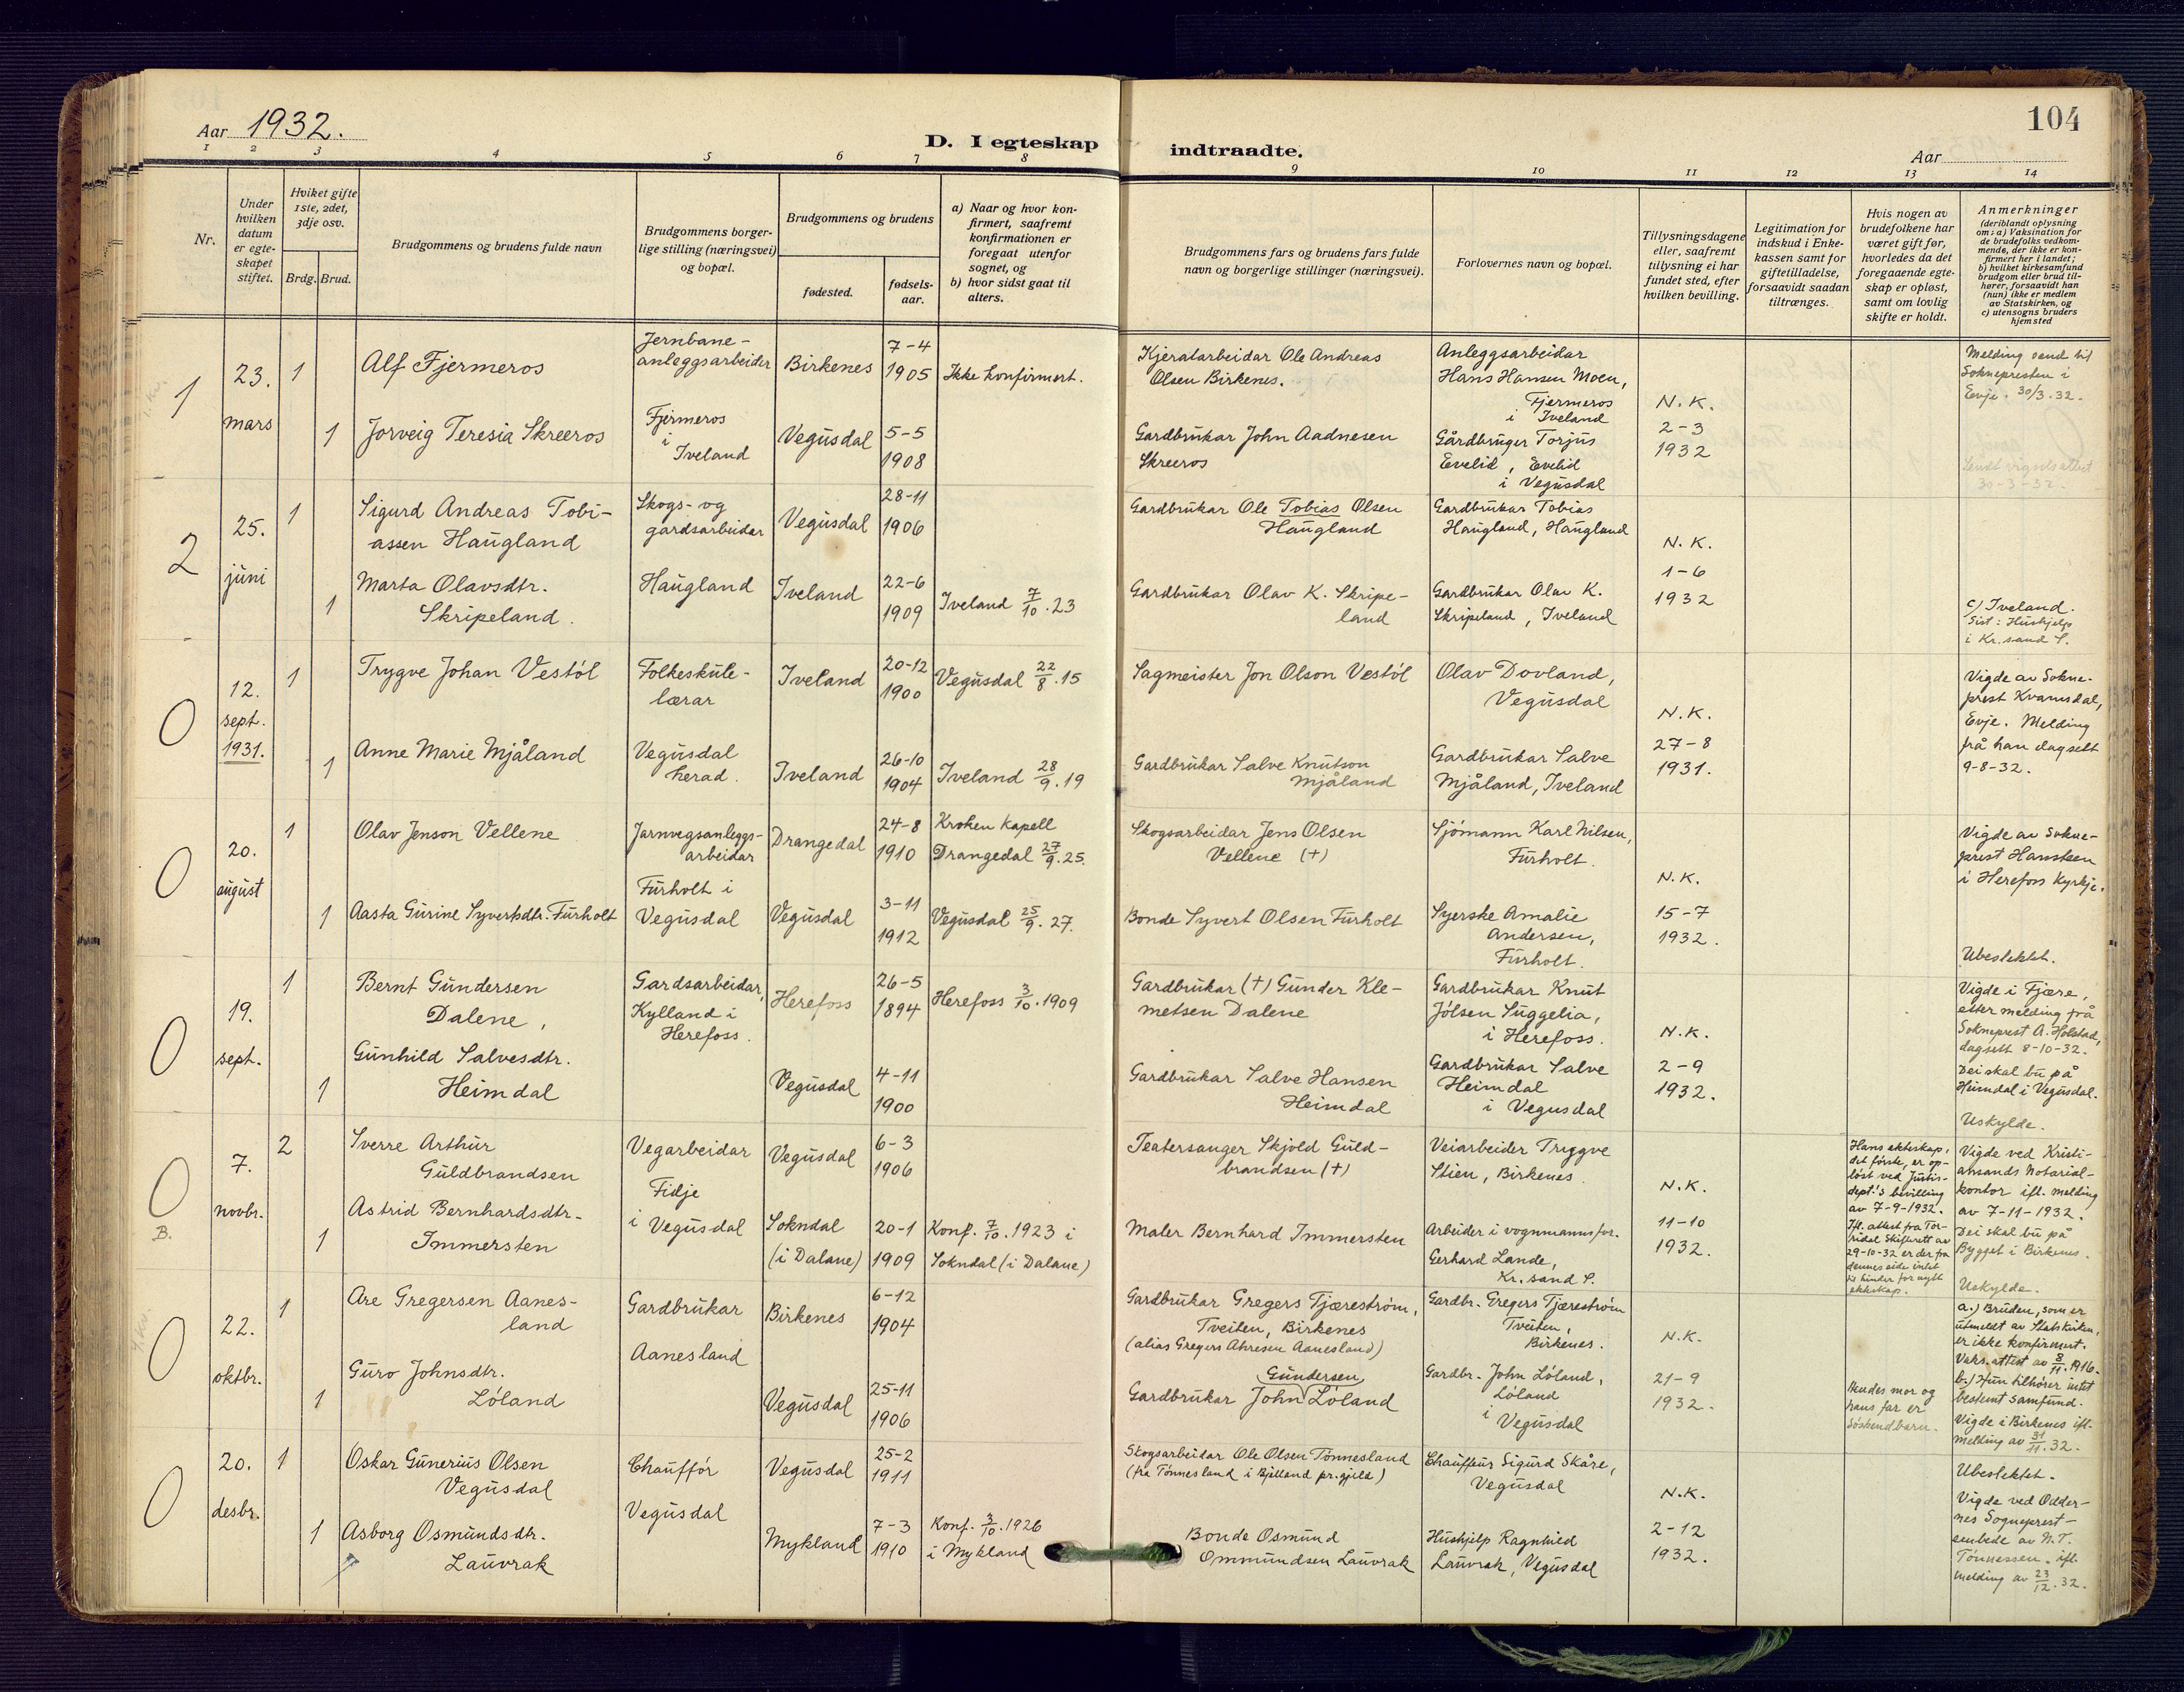 Aar 1932.
D. I egteskap indtraadte.
104
Aar
1 2 3 4 5 6 7 8 9 10 11 12 13 14
Nr.
Under hvilken datum er egte-skapet stiftet.
Hviket gifte 1ste, 2det, 3dje osv.
Brdg. Brud.
Brudgommens og brudens fulde navn
Brudgommens borger-
lige stilling (næringsvei)
og bopæl.
Brudgommens og brudens
fødested.
fødsels-
aar.
a) Naar og hvor kon-
firmert, saafremt
konfirmationen er
foregaat utenfor
sognet, og
b) hvor sidst gaat til
alters.
Brudgommens fars og brudens fars fulde
navn og borgerlige stillinger (næringsvei).
Forlovernes navn og bopæl.
Tillysningsdagene
eller, saafremt
tillysning ei har
fundet sted, efter
hvilken bevilling.
Legitimation for
indskud i Enke-
kassen samt for
giftetilladelse,
forsaavidt saadan
tiltrænges.
Hvis nogen av
brudefolkene har
været gift før,
hvorledes da det
foregaaende egte-
skap er opløst,
samt om lovlig
skifte er holdt.
Anmerkninger
(deriblandt oplysning
om: a) Vaksination for
de brudefolks vedkom-
mende, der ikke er kon-
firmert her i landet;
b) hvilket kirkesamfund
brudgom eller brud til-
hører, forsaavidt han
(hun) ikke er medlem
av Statskirken, og
c) utensogns bruders
hjemsted
1
23.
mars
1
Alf Fjermeros
Jernbane-
anleggsarbeider
Birkenes
7-4
1905
Ikke konfirmert.
Kjeratarbeidar Ole Andreas
Olsen Birkenes.
Anleggsarbeidar
Hans Hansen Moen,
Fjermeros
i Iveland
N.K.
2-3
1932
Melding send til
Soknepresten i
Evje. 30/3.32.
1
Jorveig Teresia Skreeros
Fjermeros
i
Iveland
Vegusdal
5-5
1908
Gardbrukar John Aadnesen
Skreeros
Gårdbruger Torjus
Evelid, Evelid
i Vegusdal
Sendt vigselsattest
30-3-32.
2
25.
juni
1
Sigurd Andreas Tobi-
assen Haugland
Skogs- og
gardsarbeidar
Vegusdal
28-11
1906
Gardbrukar Ole Tobias Olsen
Haugland
Gardbrukar Tobias
Haugland, Haugland
N.K.
1-6
1932
1
Marta Olavsdtr.
Skripeland.
Haugland
Iveland
22-6
1909
Iveland 7/10.23
Gardbrukar Olav K. Skripe-
land
Gardbrukar Olav K.
Skripeland, Iveland
c) Iveland.
Sist: Hushjelp
i Kr.sand S.
0
12.
sept.
1931.
1
Trygve Johan Vestöl
Folkeskule-
lærar
Iveland
20-12
1900
Vegusdal 22/8.15
Sagmeister Jon Olson Vestöl
Olav Dovland,
Vegusdal
N.K.
27-8
1931.
Vigde av Sokne-
prest Kvamsdal,
Evje. Melding
frå han dagsett
9-8-32.
1
Anne Marie Mjåland
Vegusdal
herad.
Iveland
26-10
1904
Iveland 28/9.19
Gardbrukar Salve Knutson
Mjåland
Gardbrukar Salve
Mjåland, Iveland
0
20.
august
1
Olav Jenson Vellene
Jarnvegsanleggs-
arbeidar
Drangedal
24-8
1910
Kroken Kapell
Drangedal 27/9.25.
Skogsarbeidar Jens Olsen
Vellene (+)
Sjömann Karl Nilsen,
Furholt.
N.K.
15-7
1932.
Vigde av Sokne-
prest Hansteen
i Herefoss Kyrkje.
1
Aasta Gurine Syvertsdtr. Furholt
Furholt i
Vegusdal
Vegusdal
3-11
1912
Vegusdal 25/9.27.
Bonde Syvert Olsen Furholt
Syerske Amalie
Andersen,
Furholt.
Ubeslektet.
0
19.
sept.
1
Bernt Gundersen
Dalene,
Gardsarbeidar,
Kylland i
Herefoss.
Herefoss
26-5
1894
Herefoss 3/10.1909
Gardbrukar (+) Gunder Kle-
metsen Dalene
Gardbrukar Knut
Jölsen Suggelia,
i Herefoss.
N.K.
2-9
1932.
Vigde i Fjære,
etter melding frå
Sokneprest A. Holstad,
dagsett 8-10-32.
Dei skal bu på
Heimdal i Vegusdal.
Uskylde.
1
Gunhild Salvesdtr.
Heimdal
Vegusdal
4-11
1900
Gardbrukar Salve Hansen
Heimdal
Gardbrukar Salve
Heimdal
i Vegusdal
0
B.
7.
novbr.
2
Sverre Arthur
Guldbrandsen
Vegarbeidar
Fidje
i Vegusdal
Vegusdal
6-3
1906
Teatersanger Skjold Guld-
brandsen (+)
Veiarbeider Tryggve
Stien, Birkenes.
N.K.
11-10
1932.
Hans ekteskap,
det förste, er op-
löst ved Justis-
dept.'s bevilling
av 7-9-1932.
Ifl. attest fra Tor-
ridal Skifterett av
29-10-32 er der fra
dennes side intet
til hinder for nytt
ekteskap.
Vigde ved Kristi-
ansands Notarial-
kontor ifl. melding
av 7-11-1932.
Dei skal bu på
Bygget i Birkenes.
Uskylde.
1
Astrid Bernhardsdtr.
Immersten
Sokndal
(i Dalane)
20-1
1909
Konf. 7/10.1923 i
Sokndal (i Dalane)
Maler Bernhard Immersten
Arbeider i vognmannsfor.
Gerhard Lande,
Kr. sand S.
0
22.
oktbr.
1
Are Gregersen Aanes-
land
Gardbrukar
Aanesland
Birkenes
6-12
1904
Gardbrukar Gregers Tjæreström,
Tveiten, Birkenes
(alias Gregers Ahresen Aanesland)
Gardbr. Gregers Tjæreström
Tveiten,
Birkenes.
N.K.
21-9
1932.
a.) Bruden, som er
utmeldt av Statskirken,
er ikke konfirmert.
Vaks.attest av 8/11.1916.
b.) Hun tilhörer intet
bestemt samfund.
Vigde i Birkenes ifl.
melding av 31/11.32.
1
Guro Johnsdtr.
Löland
Vegusdal
25-11
1906
Gundersen
Gardbrukar John Löland
Gardbr. John Löland,
Löland
i
Vegusdal
Hendes mor og
hans far er
söskendbarn.
0
20.
desbr.
1
Oskar Gunerius Olsen
Vegusdal
Chaufför
Vegusdal
Vegusdal
25-2
1911
Skogsarbeidar Ole Olsen Tönnesland
(fra Tönnesland i Bjelland pr.gjeld)
Chauffeur Sigurd Skåre,
Vegusdal
N.K.
2-12
1932.
Ubeslektet.
Vigde ved Odder-
nes Sogneprest-
embede av N.T.
Tönnessen. ifl.
melding av 23/12.32.
1
Asborg Osmundsdtr.
Lauvrak
Mykland
7-3
1910
Konf. 3/10.1926
i Mykland
Bonde Osmund
Ommundsen Lauvrak
Hushjelp Ragnhild
Lauvrak, Vegusdal